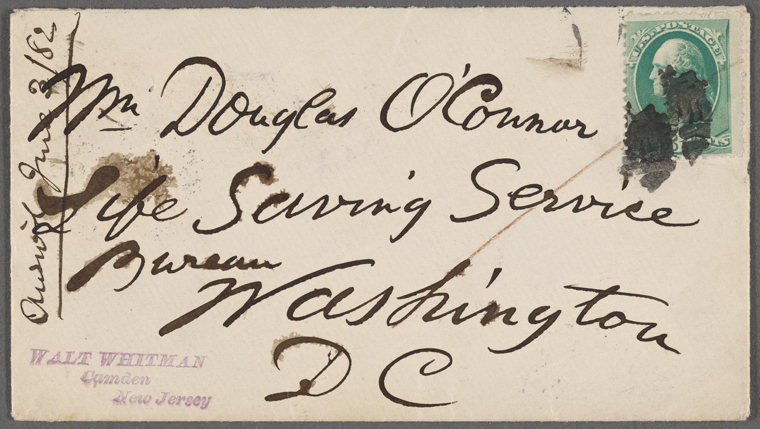 Answ'd June 3/82
U.S. POSTAGE
Wm Douglas O'Connor
Life Saving Service
Bureau
Washington
D C
WALT WHITMAN
Camden
New Jersey